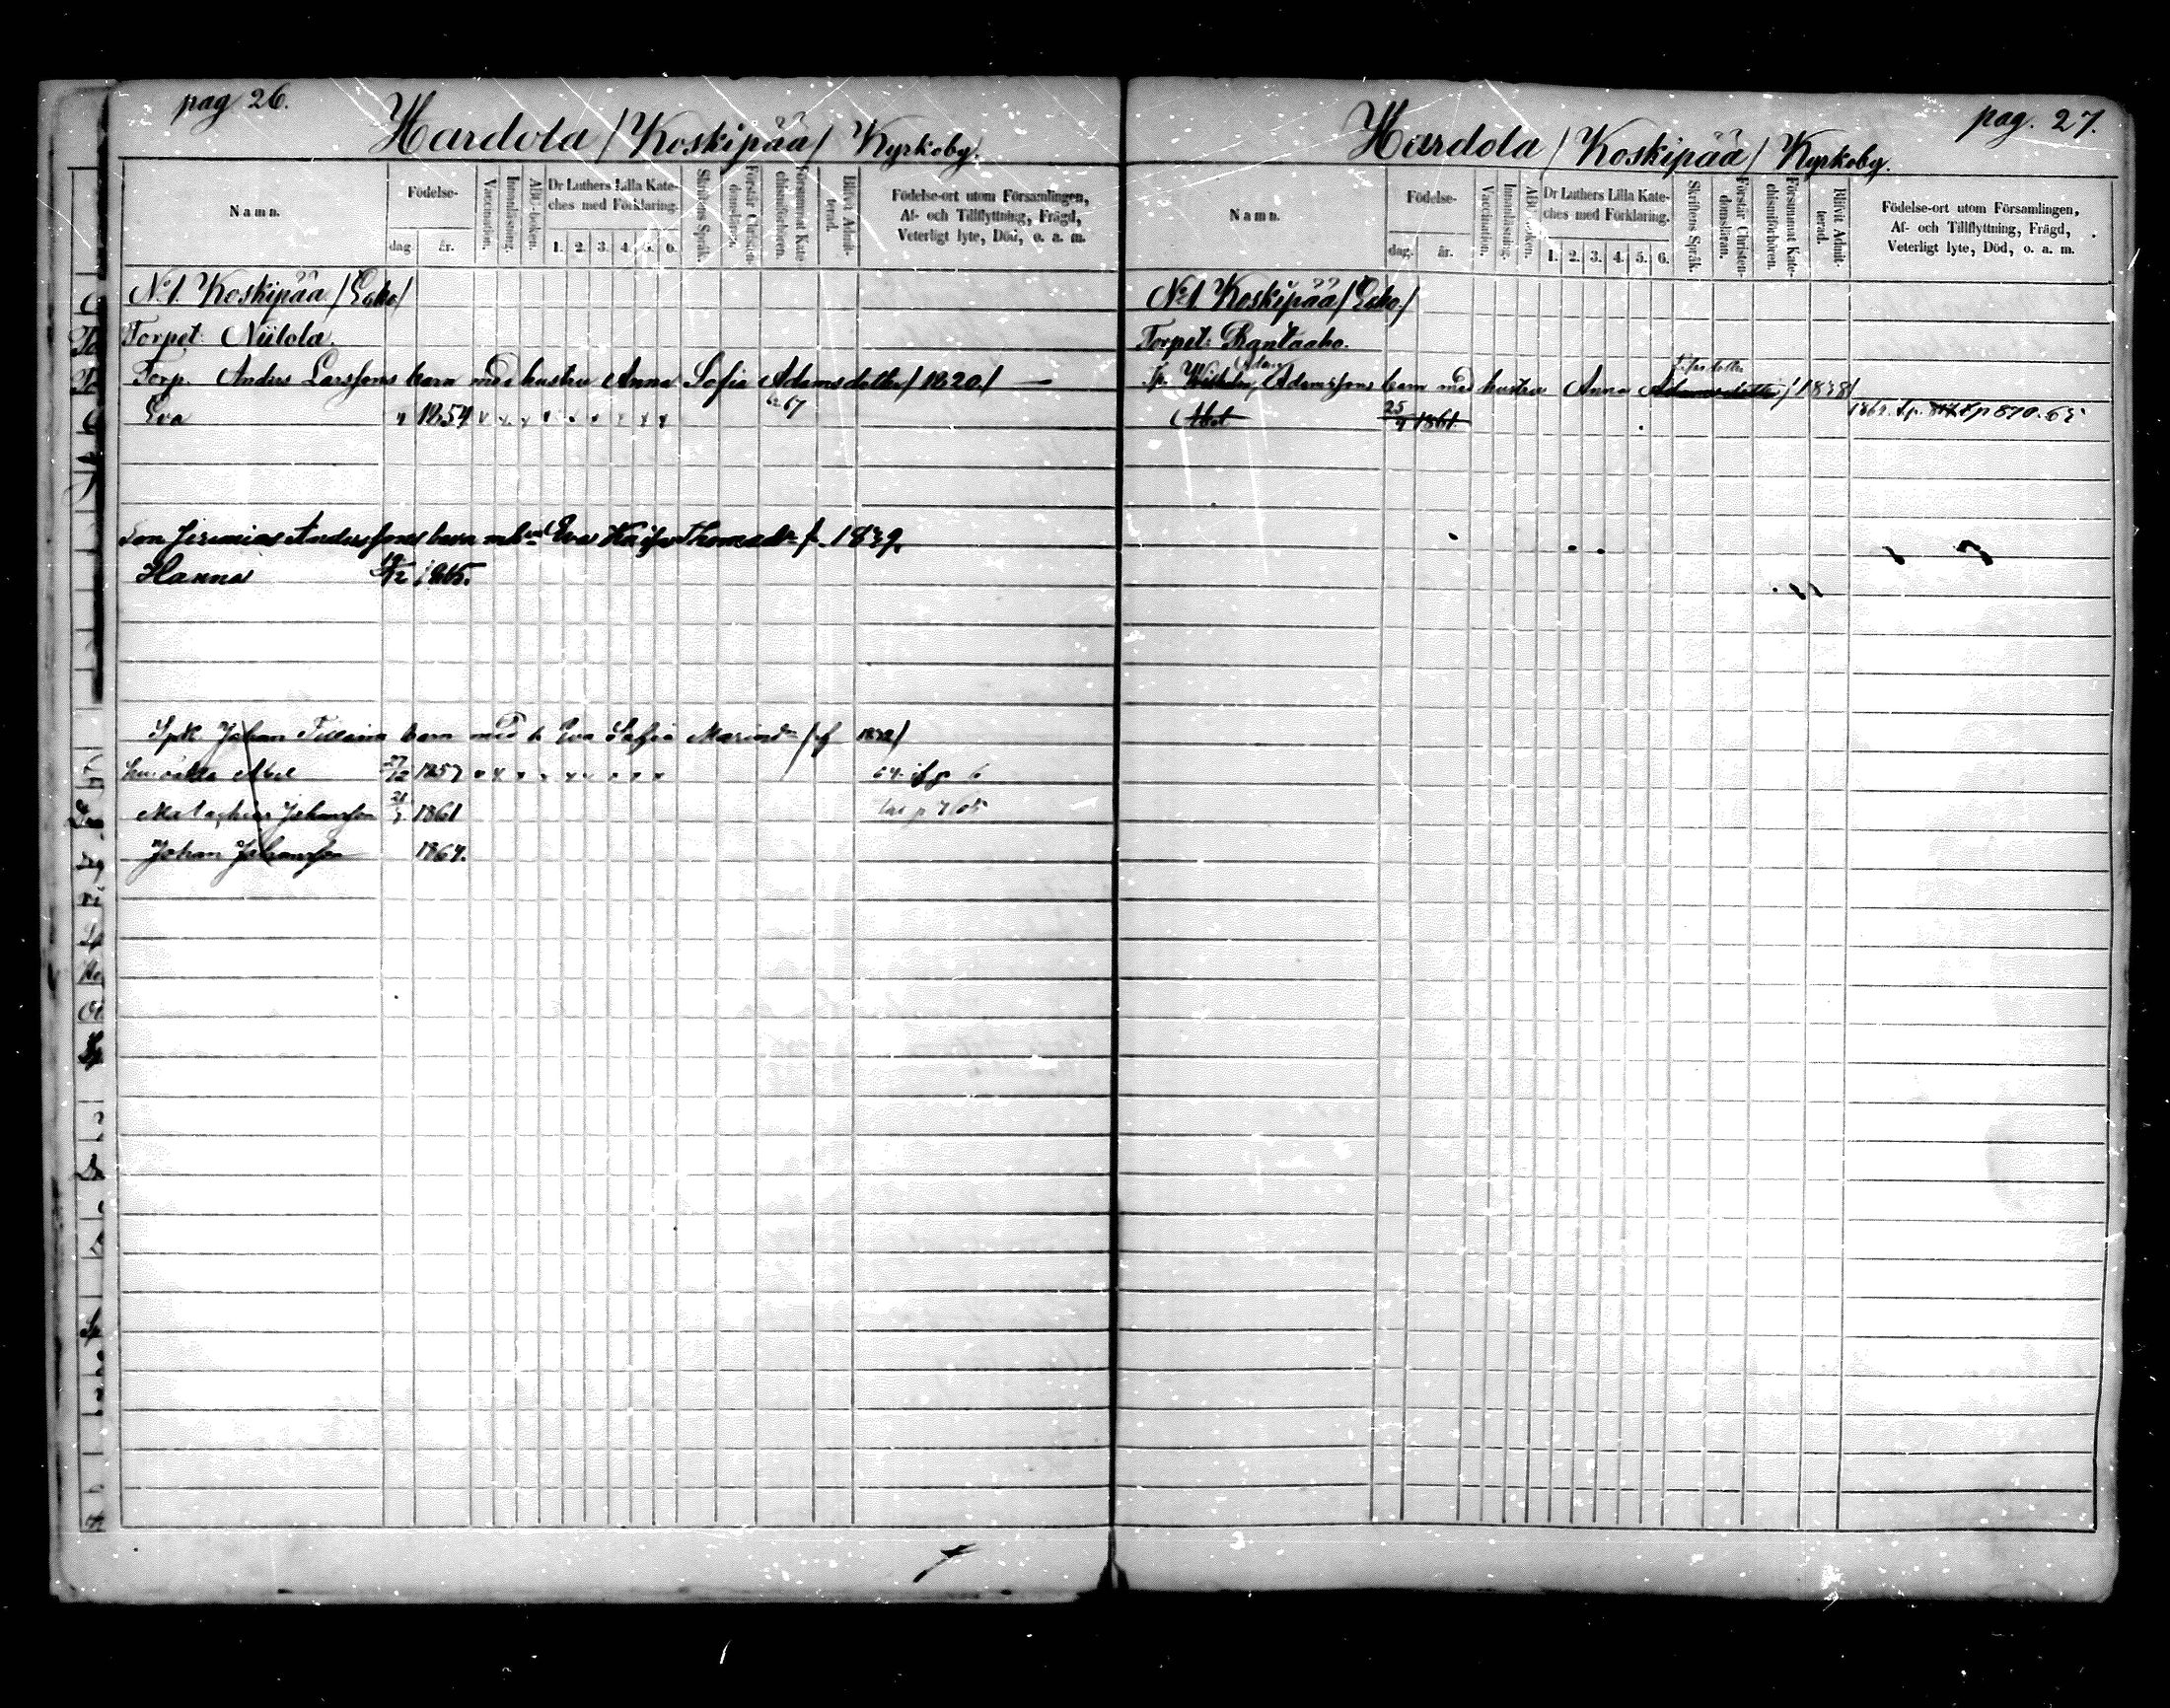 pag 26.
Hardola / Koskipää / Kyrkoby.
Namn.
Födelse-
dag
år.
Vaccination.
Innanläsning.
ABC-boken.
Dr Luthers Lilla Kate-
ches med Förklaring.
1. 2. 3. 4. 5. 6.
Skriftens Språk.
Förstår Christen-
domsläran.
Försummat Kate-
chismiförhören.
Blifvit Admit-
terad.
Födelse-ort utom Församlingen,
Af- och Tillflyttning, Frägd,
Veterligt lyte, Död, o. a. m.
No 1. Koskipää / Esko /
Torpet: Niilola.
Torp. Anders Larssons barn med hustru Anna Sofia Adamsdotter / 1820 / —
Eva 1854 x x x x x x x x x 67
Son Jeremias Anderssons barn m Eva Thomasdr f. 1839.
Hanna 1865.
Johan barn med h Eva Sofia /f
Abel 27/12 1857 64. 6
Johansson 21 1861 p 7 65
Johan Johansson 1864.
pag. 27.
Hardola / Koskipää / Kyrkoby.
Namn.
Födelse-
dag.
år.
Vaccination.
Innanläsning.
ABC-boken.
Dr Luthers Lilla Kate-
ches med Förklaring.
1. 2. 3. 4. 5. 6.
Skriftens Språk.
Förstår Christen-
domsläran.
Försummat Kate-
chismiförhören.
Blifvit Admit-
terad.
Födelse-ort utom Församlingen,
Af- och Tillflyttning, Frägd,
Veterligt lyte, Död, o. a. m.
No 1. Koskipää / Esko /
Torpet: Rantaaho.
Adam
Wilhelm Adamssons barn med hustru Anna Adamsdotter / 1838 /
Abel 25/4 1861. p 870. 65